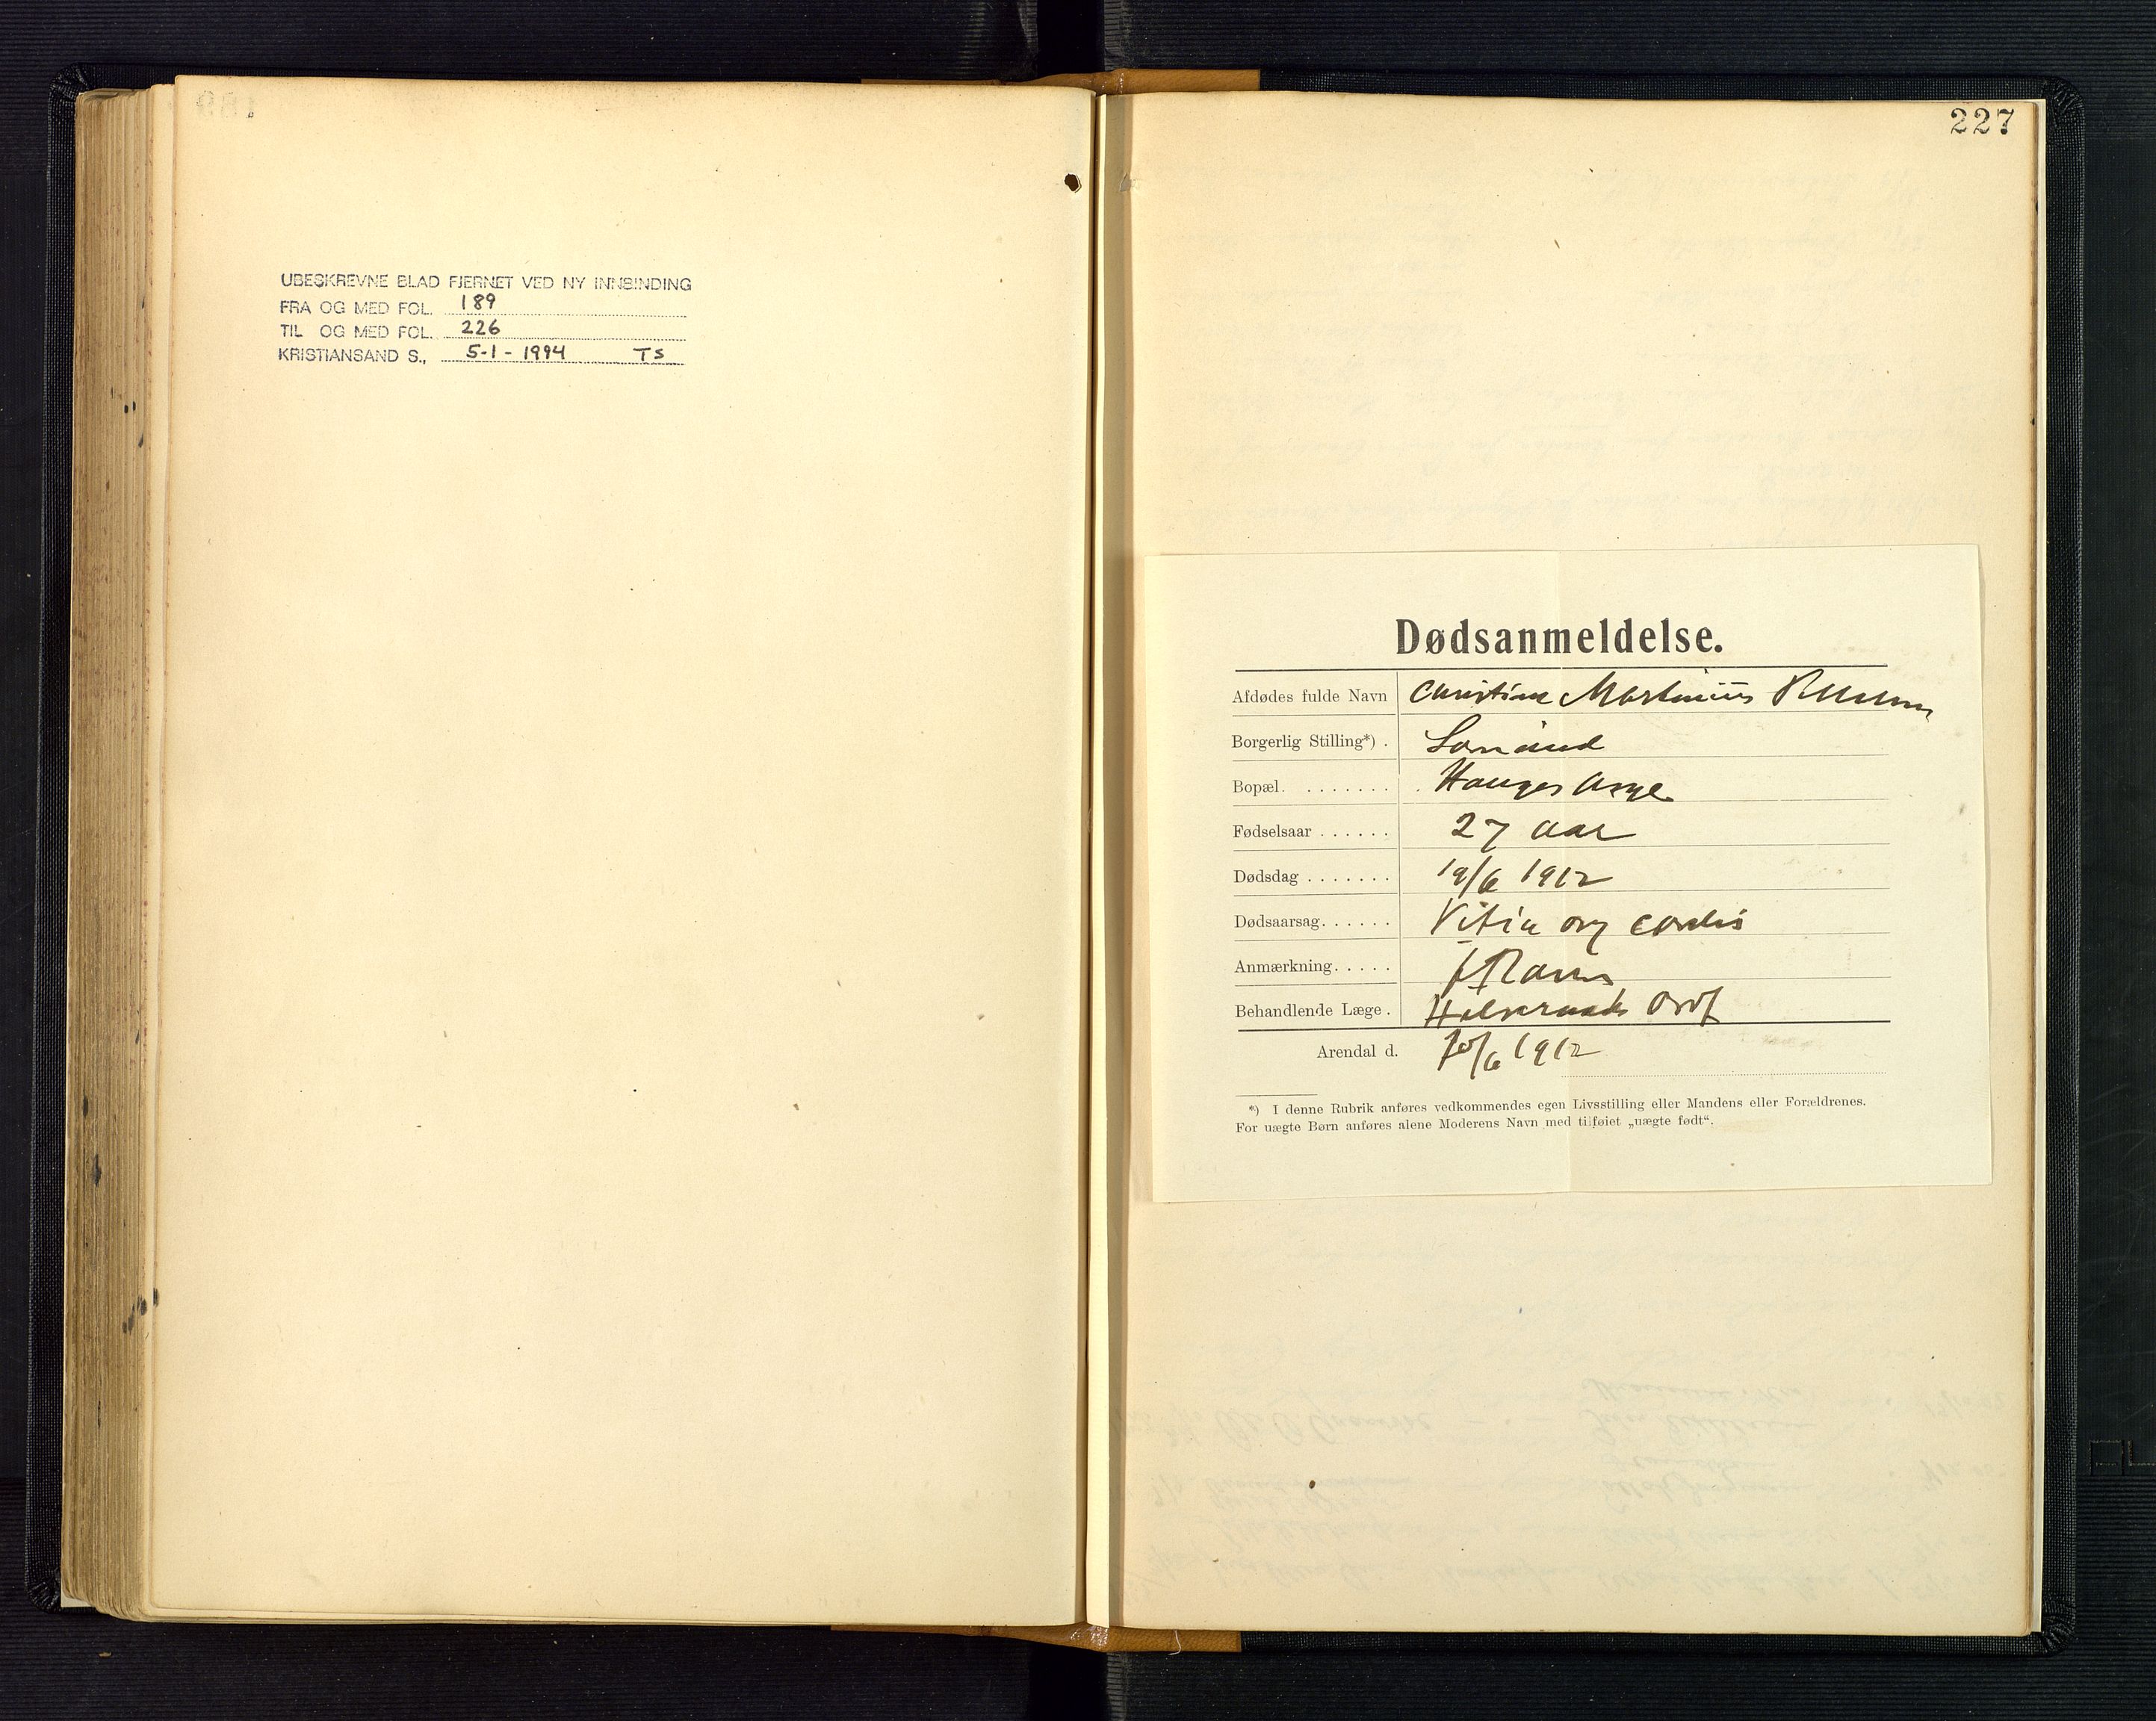 UBESKREVNE BLAD FJERNET VED NY INNBINDING
FRA OG MED FOL. 189
TIL OG MED FOL. 226
KRISTIANSAND S., 5-1-1994 TS
227
Dødsanmeldelse.
Afdødes fulde Navn Christian Martinius
Borgerlig Stilling*) . Sømand
Bopæl. . . . . . . . Hauges
Fødselsaar . . . . . . 27 aar
Dødsdag . . . . . . . 19/6 1912
Dødsaarsag. . . . . . Vitiu org cordis
Anmærkning. . . . .
Behandlende Læge .
Arendal d. 20/6 1912
*) I denne Rubrik anføres vedkommendes egen Livsstilling eller Mandens eller Forældrenes.
For uægte Børn anføres alene Moderens Navn med tilføiet „uægte født“.